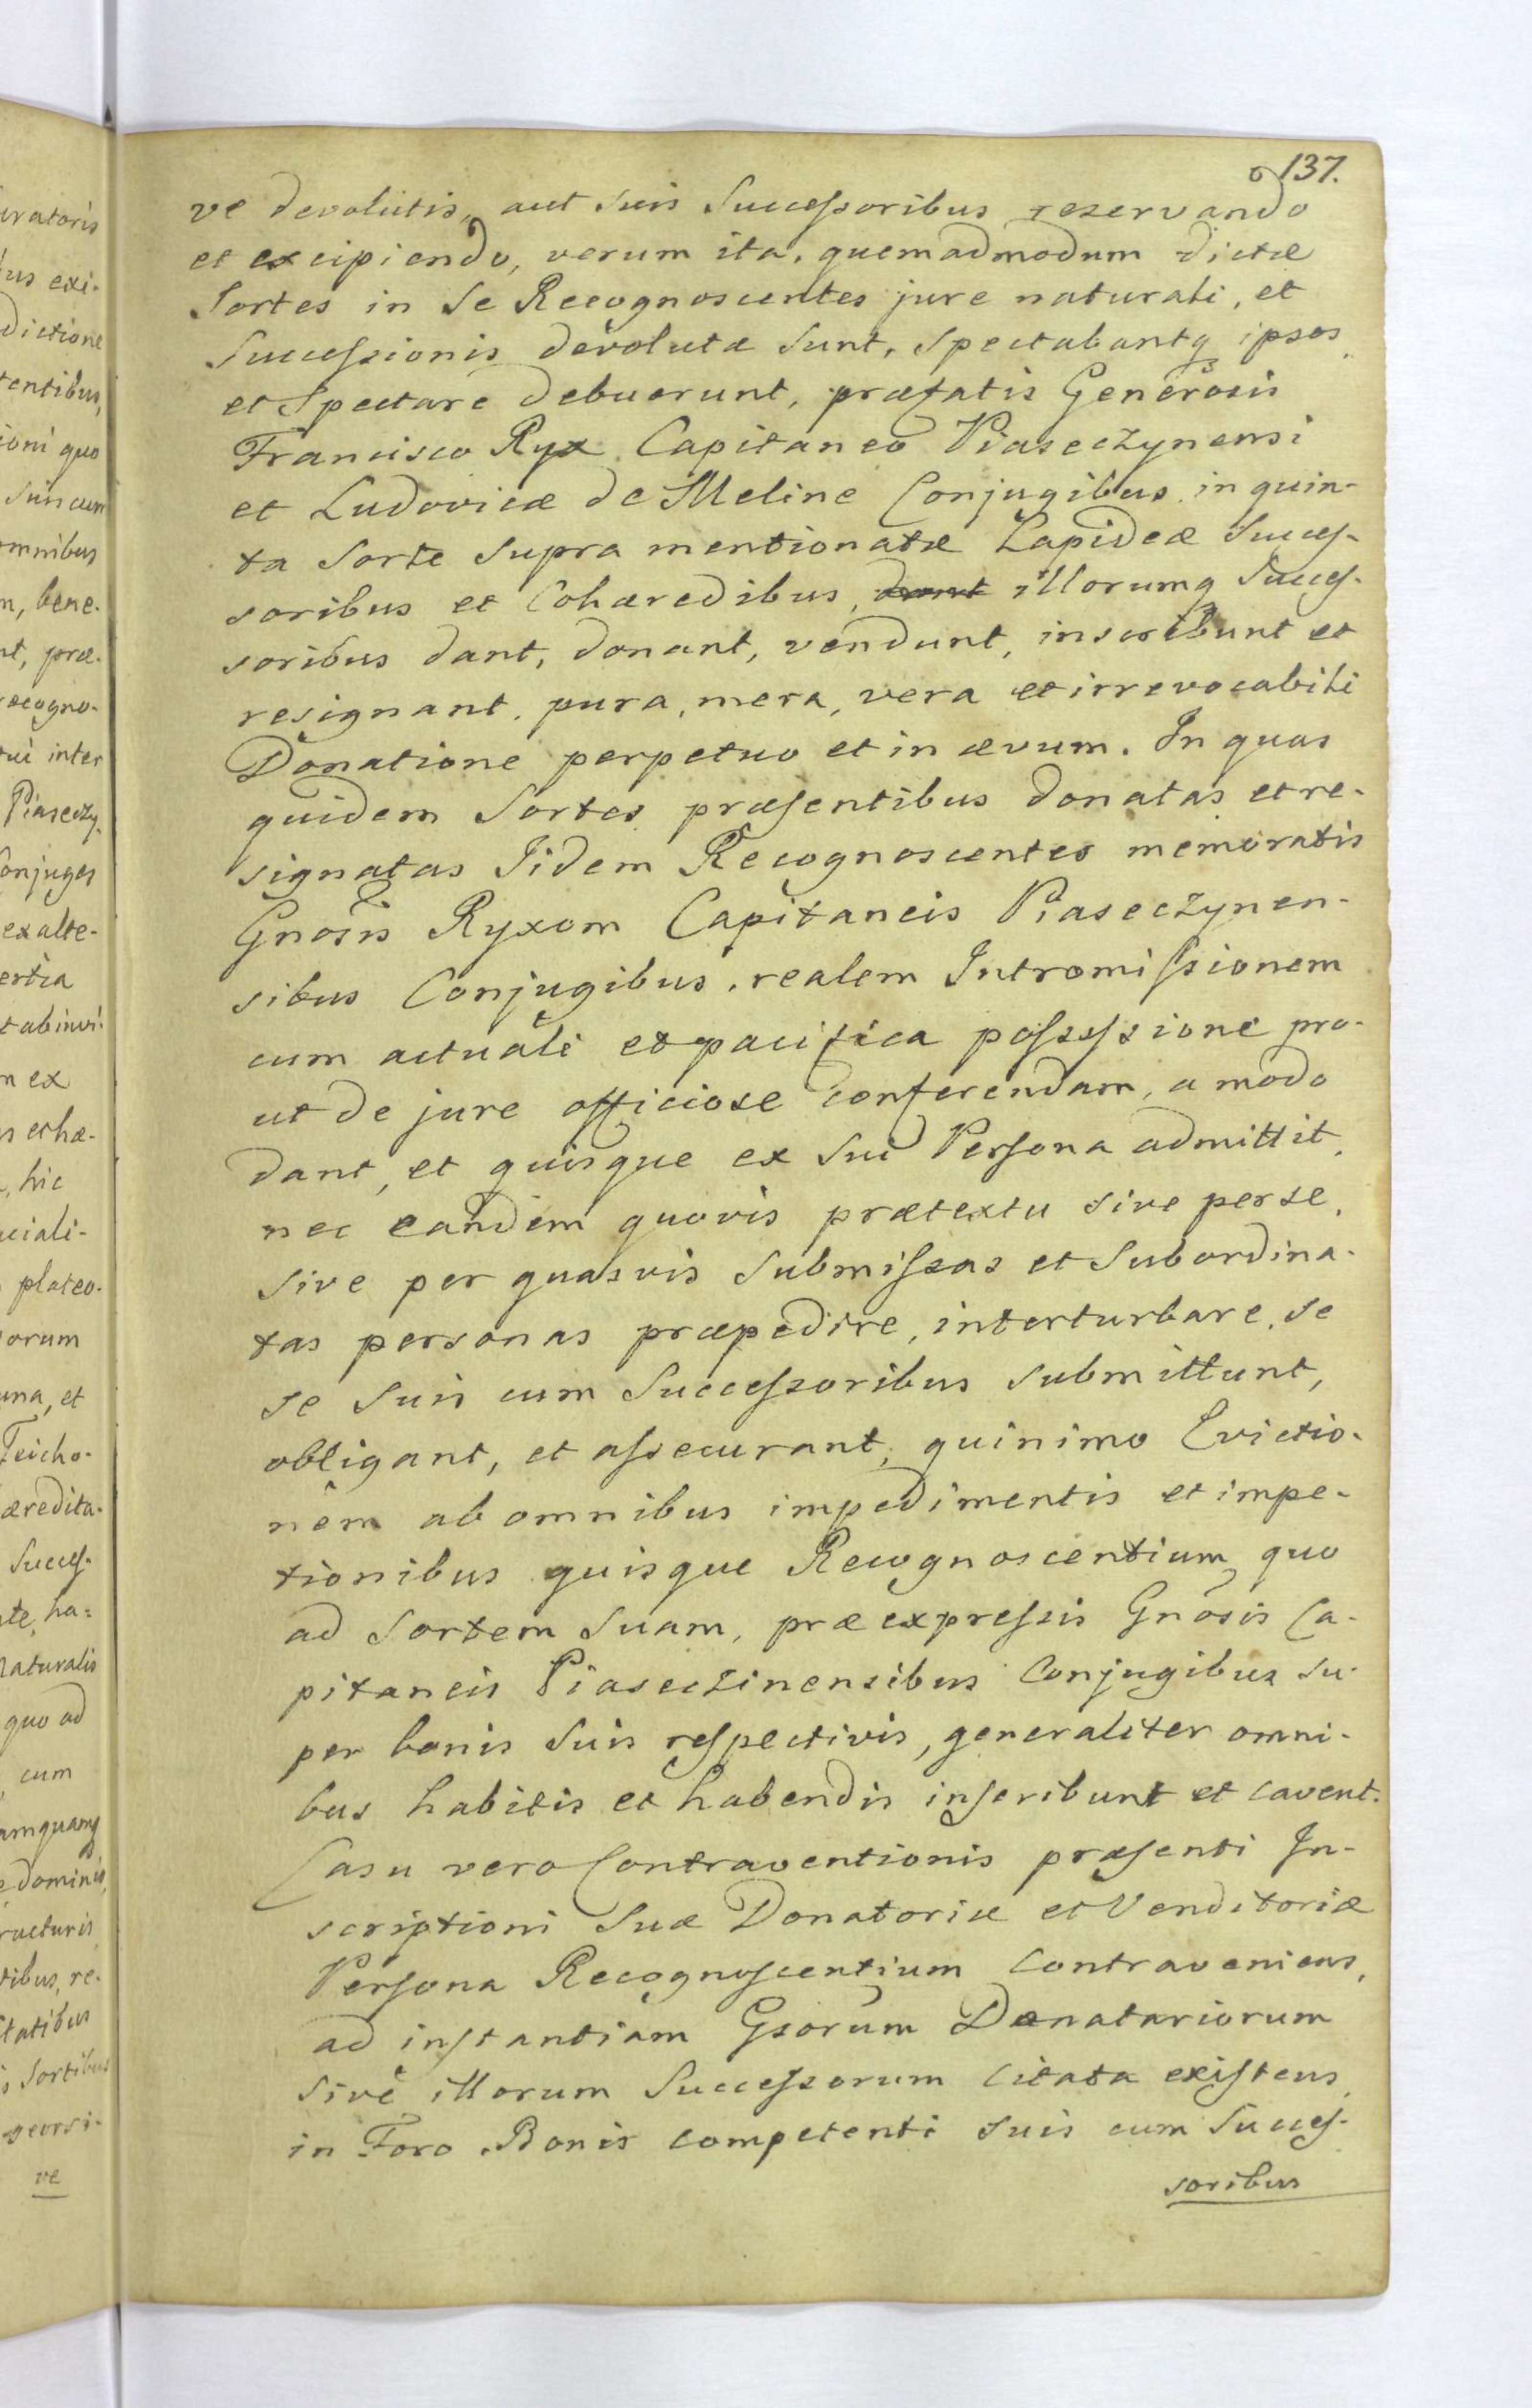 137.
ve devolutis, aut suis Successoribus reservando
et excipiendo, verum ita, quemadmodum dictæ
Sortes in se Recognoscentes jure naturali, et
Successionis devolutæ sunt, spectabantq ipsos
et spectare debuerunt, præfatis Generosis
Francisco Ryx Capitaneo Piaseczynensi
et Ludovicæ de Meline Conjugibus in quin-
ta Sorte supra mentionatæ Lapideæ Succes-
soribus et Cohæredibus, dant illorumq Succes-
soribus dant, donant, vendunt, inscribunt et
resignant, pura, mera, vera et irrevocabili
Donatione perpetuo et in ævum. In quas
quidem Sortes præsentibus donatas et re-
signatas Iidem Recognoscentes memoratis
Gnosis Ryxom Capitaneis Piaseczynen-
sibus Conjugibus, realem Intromissionem
cum actuali et pacifica possessione pro-
ut de jure officiose conferendam, a modo
dant, et quisque ex sui Persona admittit,
nec eandem quovis prætextu sive per se,
sive per quasvis submissas et subordina-
tas personas præpedire, interturbare, se
se suis cum Successoribus submittunt,
obligant, et assecurant, quinimo Evictio-
nem ab omnibus impedimentis et impe-
tionibus quisque Recognoscentium quo
ad Sortem suam, præexpressis Gnosis Ca-
pitaneis Piaseczinensibus Conjugibus su-
per bonis suis respectivis, generaliter omni-
bus habitis et habendis inscribunt et cavent.
Casu vero Contraventionis præsenti In-
scriptioni suæ Donatoriæ et Venditoriæ
Persona Recognoscentium Contraveniens,
ad instantiam Gsorum Donatariorum
sive illorum Successorum citata existens,
in Foro Bonis competenti suis cum Succes-
soribus
uratoris
bus exi-
dictione
tentibus,
ioni quo
suis cum
omnibus
m, bene-
nt, præ-
recogno-
tui inter
Piaseczy-
Conjuges
ex alte-
ertia
t ab invi-
n ex
s et hæ-
, hic
aciali-
plateo-
iorum
una, et
Teicho-
æredita-
Succes-
te, ha-
naturalis
quo ad
cum
amquamq
dominis,
ructuris
tibus, re-
tatibus
s Sortibus
georsi-
ve